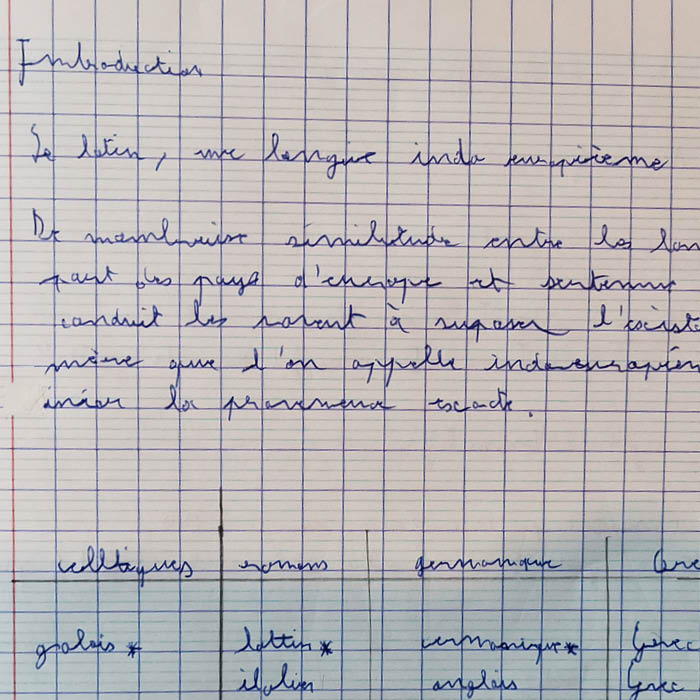 Introduction
Le latin, une langue indo européenne
De nombreuse similitude entre les lan
part des pays d'europe et
conduit les savent à suposer l'existe
mère que l'on appelle indoeuropéen
la exacte.
celltiques romans germanique Grec
galois* lattin* germanique* Grec
italien anglais Grec